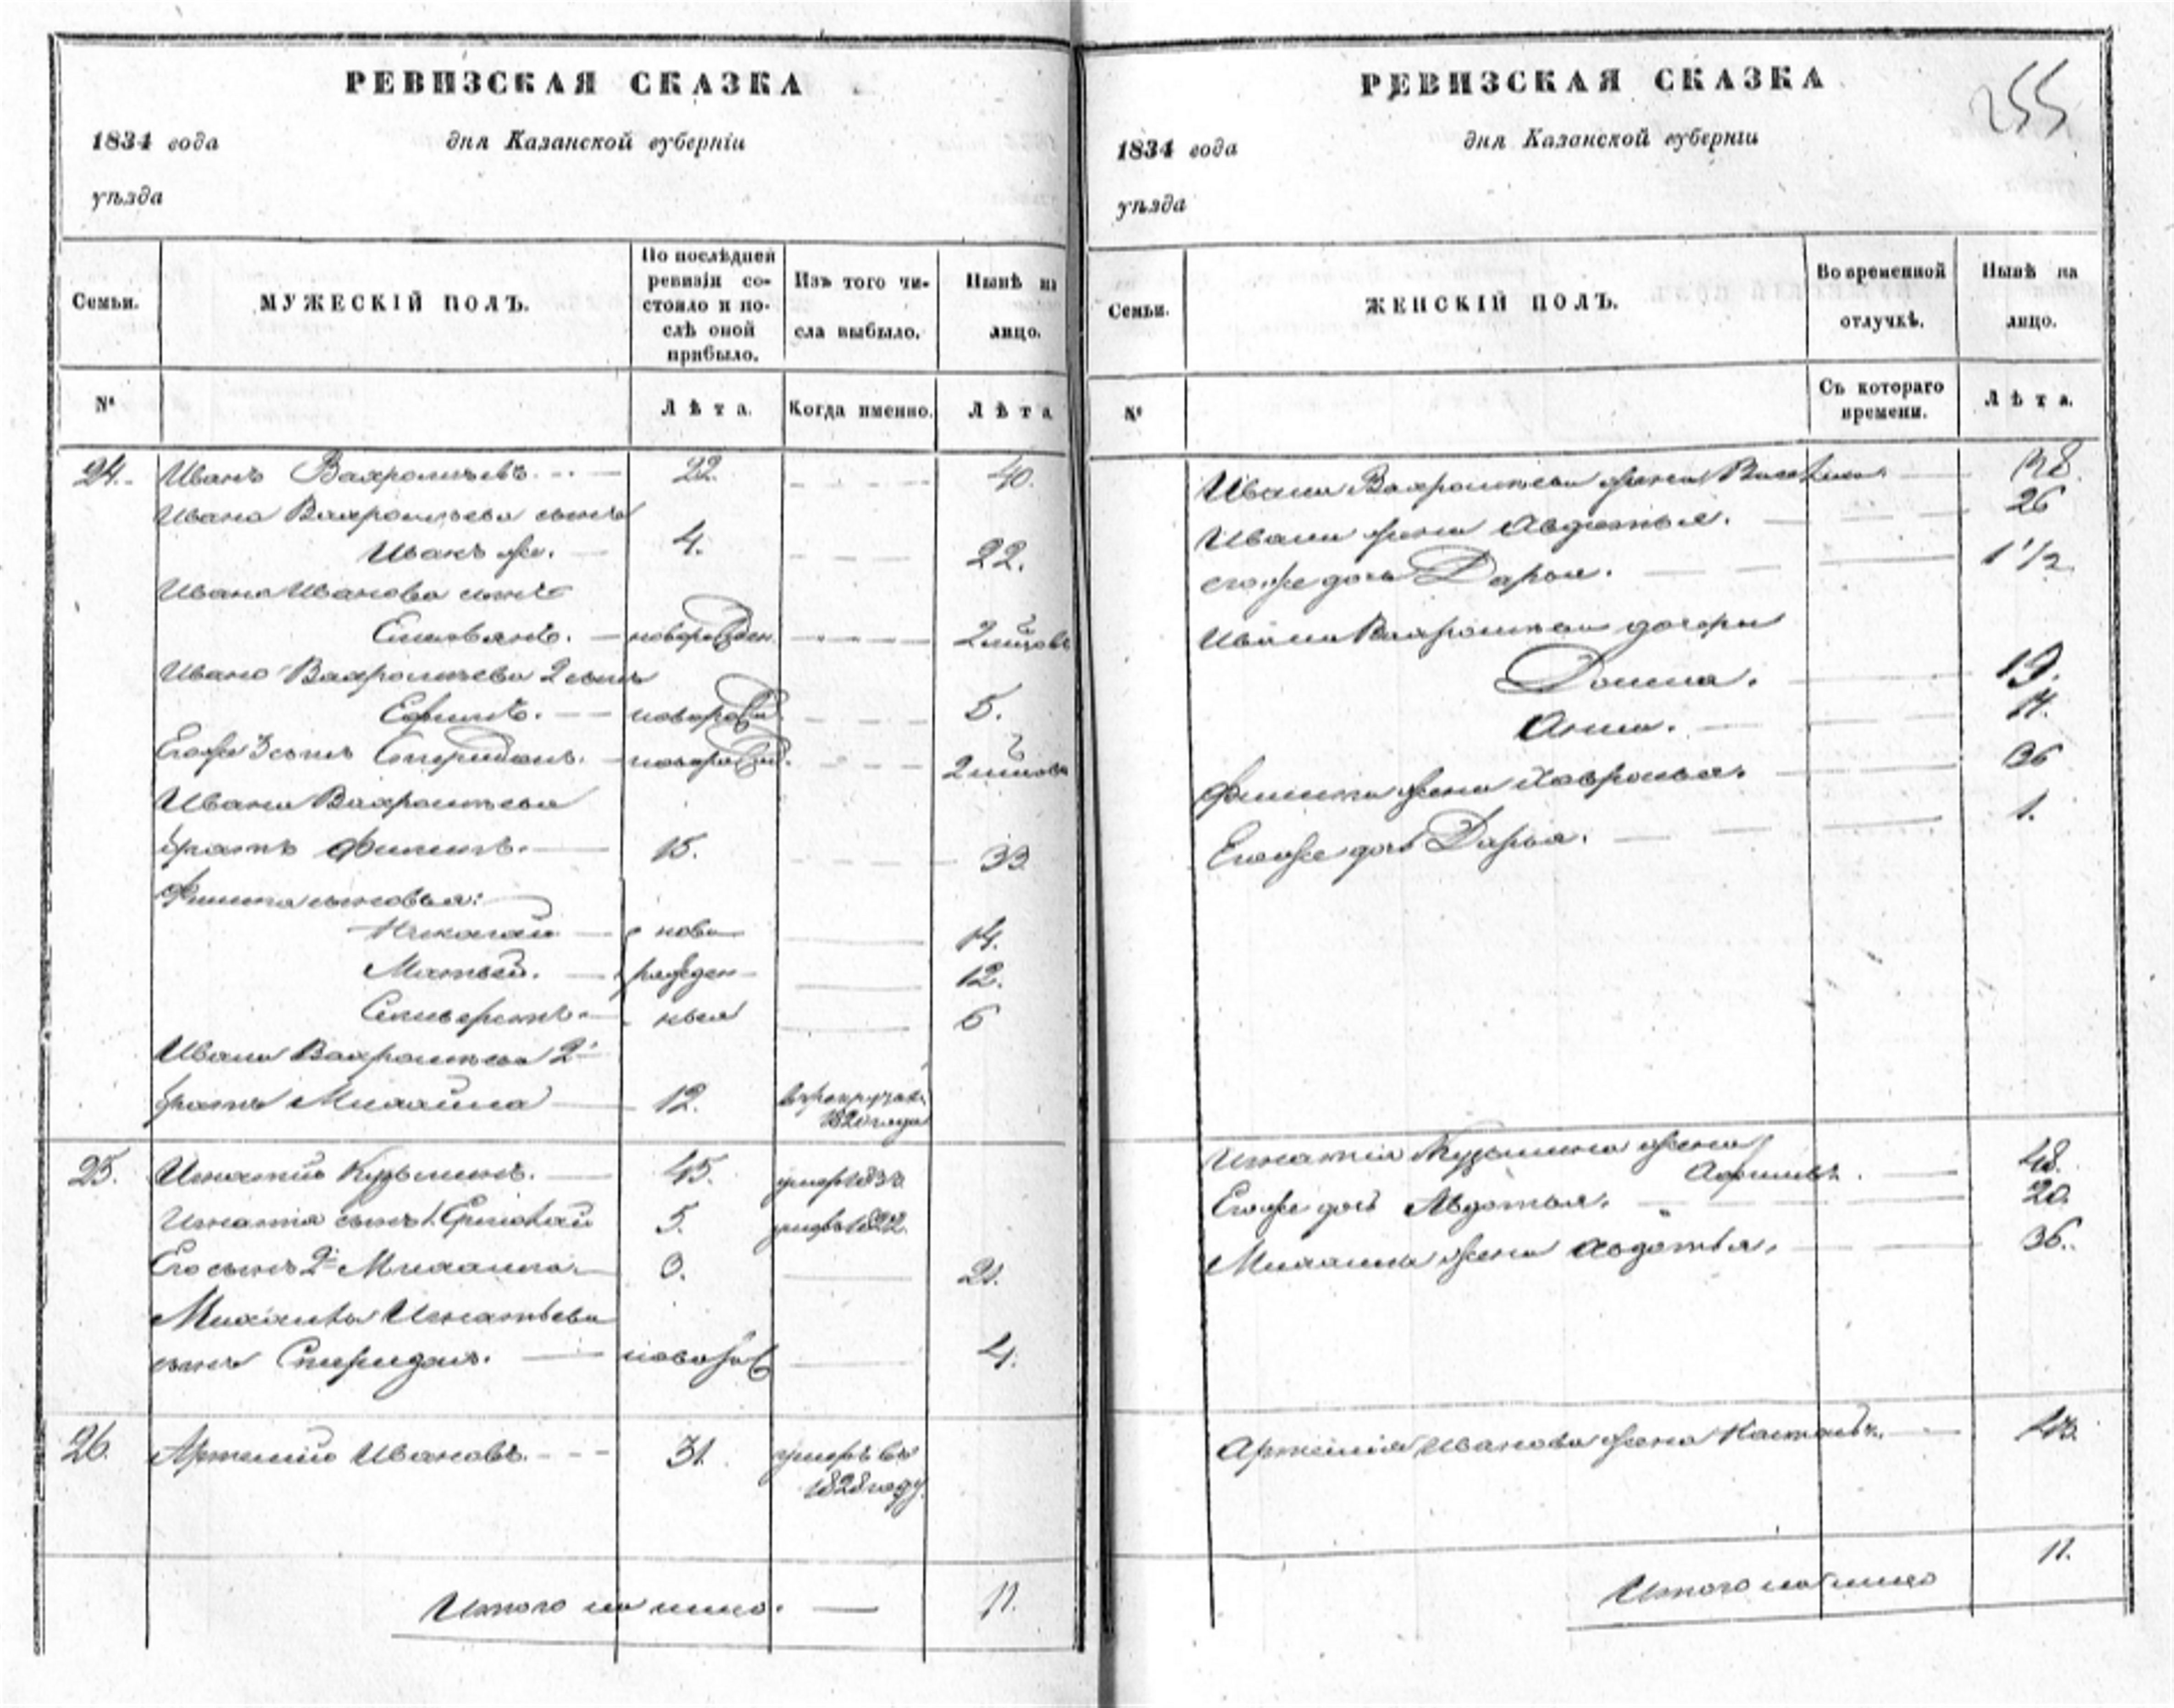 РЕВИЗСКАЯ СКАЗКА
1834 года дня Казанской губерніи
уѣзда
Семьи.
МУЖЕСКІЙ ПОЛЪ.
По послѣдней ревизіи состояло и послѣ оной прибыло.
Изъ того числа выбыло.
Нынѣ на лицо.
№
Лѣта.
Когда именно.
Лѣта
24. Иванъ Вахромѣевъ. 22. 40.
Ивана Вахромѣева сынъ
Иванъ же. 4. 22.
Ивана Иванова сынъ
новорожден. 2
Ивана Вахромѣева 2 сынъ
Ефимъ. новорожд 5.
Егоже 3 сынъ Спиридонъ. новорожд. 2
Ивана Вахромѣева
братъ Филипъ. 15. 33
Филипа сыновья:
Николай ново 14.
Матвей. рожден 12.
Селиверстъ ныя 6
Ивана Вахромѣева 2й
братъ Михайла 12. в рекруты
25. Игнатій Кузьминъ. 45. умеръ 1833
Игнатія сынъ 1 Ермолай 5. умеръ 1822.
Его сынъ 2й Михайла 3. 21.
Михайлы Игнатьева
сынъ Спиридонъ. новорож 4.
26. Артемій Ивановъ. 31. умеръ въ
1828 году
Итого на лицо. 11.
РЕВИЗСКАЯ СКАЗКА
255
1834 года дня Казанской губерніи
уѣзда
Семьи.
ЖЕНСКІЙ ПОЛЪ.
Во временной отлучкѣ.
Нынѣ на лицо.
№
Съ котораго времени.
Лѣта.
Ивана Вахромѣева жена 38.
Ивана жена Авдотья. 26
егоже дочь Дарья. 1 1/2
Ивана Вахромѣева дочери
Домна. 19.
Анна. 14.
Филипа жена Хавронья. 36
Егоже дочь Дарья. 1.
Игнатія Кузьмина жена
48.
Егоже дочь Авдотья. 20.
Михайлы жена Авдотья. 36.
Артемія Иванова жена 43.
11.
Итого на лицо